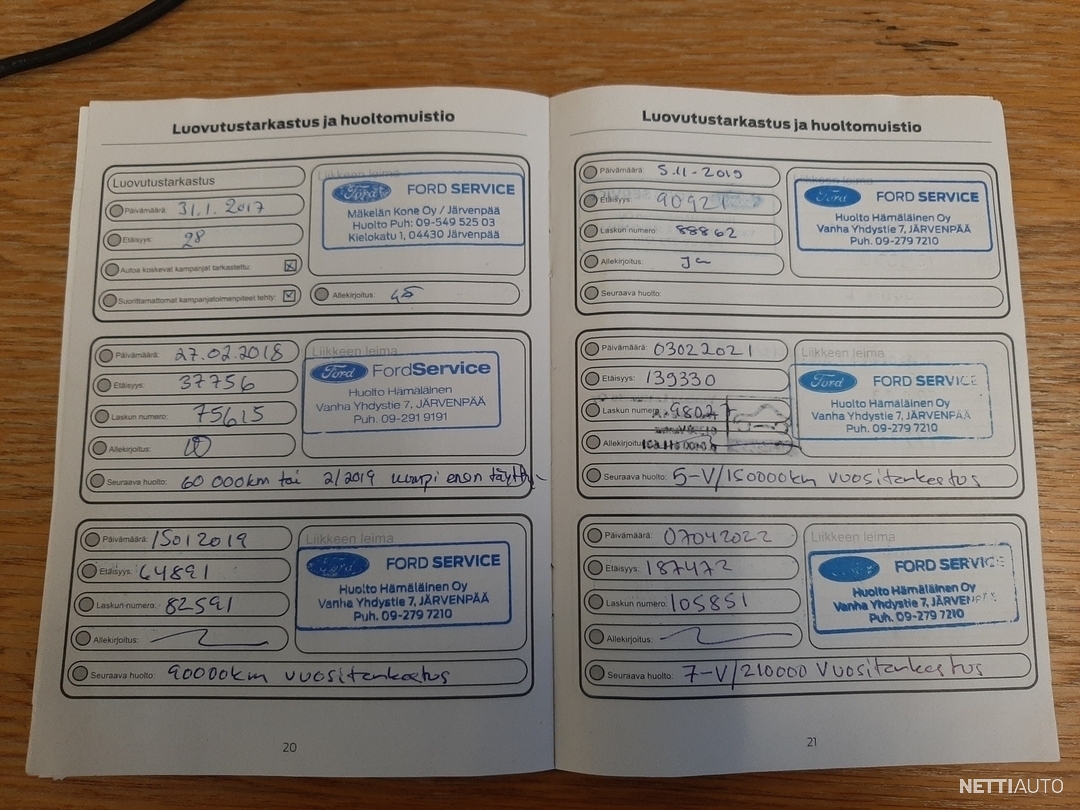 Luovutustarkastus ja huoltomuistio
Luovutustarkastus
Päivämäärä: 31.1.2017
Etäisyys: 28
Autoa koskevat kampanjat tarkastettu:
Suorittamattomat kampanjatoimenpiteet tehty:
Liikkeen leima
Ford FORD SERVICE
Mäkelän Kone Oy / Järvenpää
Huolto Puh: 09-549 525 03
Kielokatu 1, 04430 Järvenpää
Allekirjoitus:
Päivämäärä: 27.02.2018
Etäisyys: 37756
Laskun numero: 75615
Allekirjoitus:
Liikkeen leima
Ford FordService
Huolto Hämäläinen
Vanha Yhdystie 7, JÄRVENPÄÄ
Puh. 09-291 9191
Seuraava huolto: 60 000km tai 2/2019 kumpi ensin täyttyy
Päivämäärä: 15012019
Etäisyys: 64891
Laskun numero: 82591
Allekirjoitus:
Liikkeen leima
Ford FORD SERVICE
Huolto Hämäläinen Oy
Vanha Yhdystie 7, JÄRVENPÄÄ
Puh. 09-279 7210
Seuraava huolto: 90000km vuositarkastus
20
Luovutustarkastus ja huoltomuistio
Päivämäärä: 5.11-2019
Etäisyys: 90921
Laskun numero: 88862
Allekirjoitus:
Liikkeen leima
Ford FORD SERVICE
Huolto Hämäläinen Oy
Vanha Yhdystie 7, JÄRVENPÄÄ
Puh. 09-279 7210
Seuraava huolto:
Päivämäärä: 03022021
Etäisyys: 139330
Laskun numero:
Allekirjoitus:
Liikkeen leima
Ford FORD SERVICE
Huolto Hämäläinen Oy
Vanha Yhdystie 7, JÄRVENPÄÄ
Puh. 09-279 7210
Seuraava huolto: 5-V/150000km vuositarkastus
Päivämäärä: 07042022
Etäisyys: 187472
Laskun numero: 105851
Allekirjoitus:
Liikkeen leima
FORD SERVICE
Huolto Hämäläinen Oy
Vanha Yhdystie 7, JÄRVENPÄÄ
Puh. 09-279 7210
Seuraava huolto: 7-V/210000 Vuositarkastus
21
NETTIAUTO